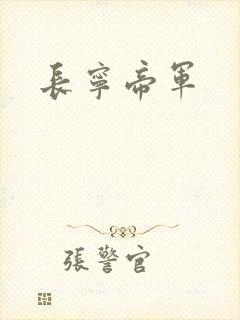 長寧帝軍
張警官